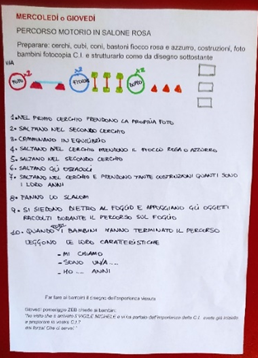 MERCOLEDÌ o GIOVEDÌ
PERCORSO MOTORIO IN SALONE ROSA
Preparare: cerchi, cubi, coni, bastoni fiocco rosa e azzurro, costruzioni, foto
bambini fotocopia C.I. e strutturarlo come da disegno sottostante
VIA
1. NEL PRIMO CERCHIO PRENDONO LA PROPRIA FOTO
2. SALTANO NEL SECONDO CERCHIO
3. CAMMINANO IN EQUILIBRIO
4. SALTANO NEL CERCHIO PRENDONO IL FIOCCO ROSA O AZZURRO
5. SALTANO NEL SECONDO CERCHIO
6. SALTANO GLI OSTACOLI
7. SALTANO NEL CERCHIO E PRENDONO TANTE COSTRUZIONI QUANTI SONO
I LORO ANNI
8. FANNO LO SLALOM
9. SI SIEDONO DIETRO AL FOGLIO E APPOGGIANO GLI OGGETTI
RACCOLTI DURANTE IL PERCORSO SUL FOGLIO
10. QUANDO I BAMBINI HANNO TERMINATO IL PERCORSO
LEGGONO LE LORO CARATTERISTICHE
- MI CHIAMO
- SONO UN/A....
- HO .... ANNI
Far fare ai bambini il disegno dell'esperienza vissuta
Giovedì pomeriggio